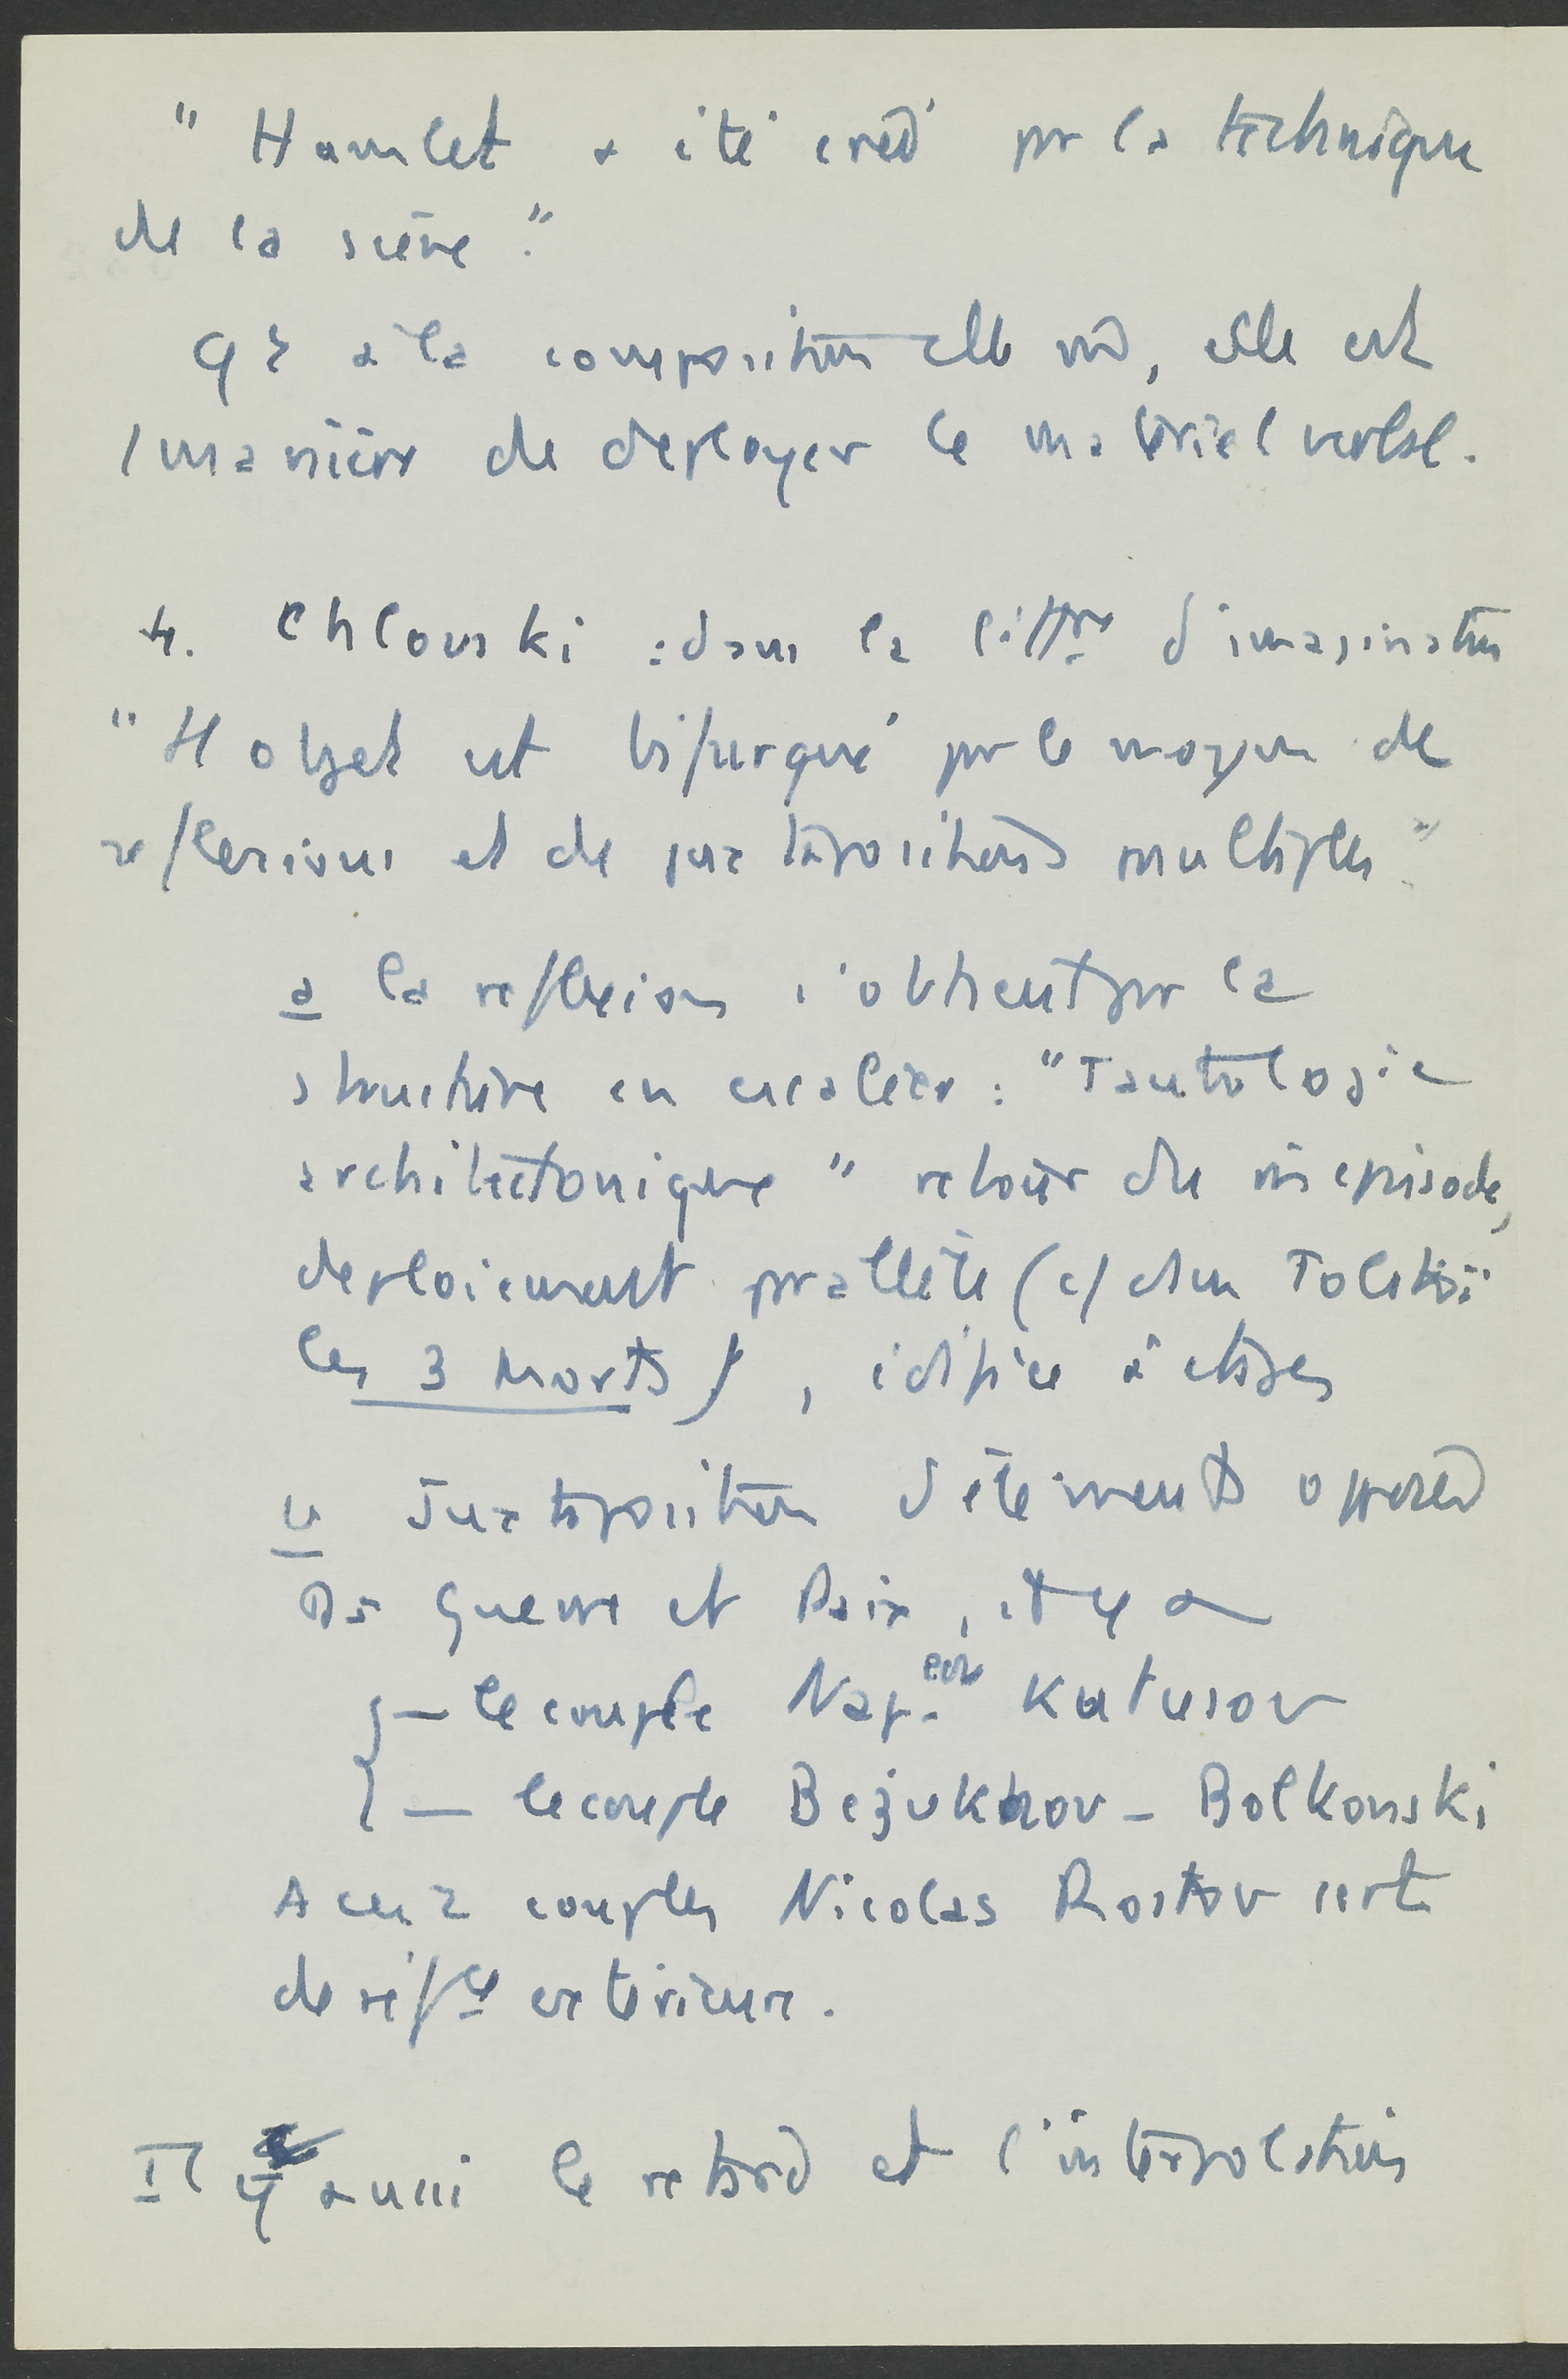 " Hamlet a été créé par la technique
de la scène."
Qt à la composition elle m̂, elle est
1 manière de déployer le matériel verbal.
4. Chlovski : dans la littre d'imagination
" H objet est bifurqué par le moyen de
réflexions et de juxtapositions multiples"
a la réflexion s'obtient par la
structure en escalier : "Tautologie
architectonique" retour du m̂ épisode,
déploiement parallèle (c/ chez Tolstoï
les 3 Morts), édifice à étages
b Juxtaposition d'éléments opposés
Ds Guerre et Paix, il y a
— le couple Nap.éon Kutusov
— le couple Bezukhov - Bolkonski
A ces 2 couples Nicolas Rostov sert
de réfce extérieure.
Il y a aussi le retard et l'interpolation